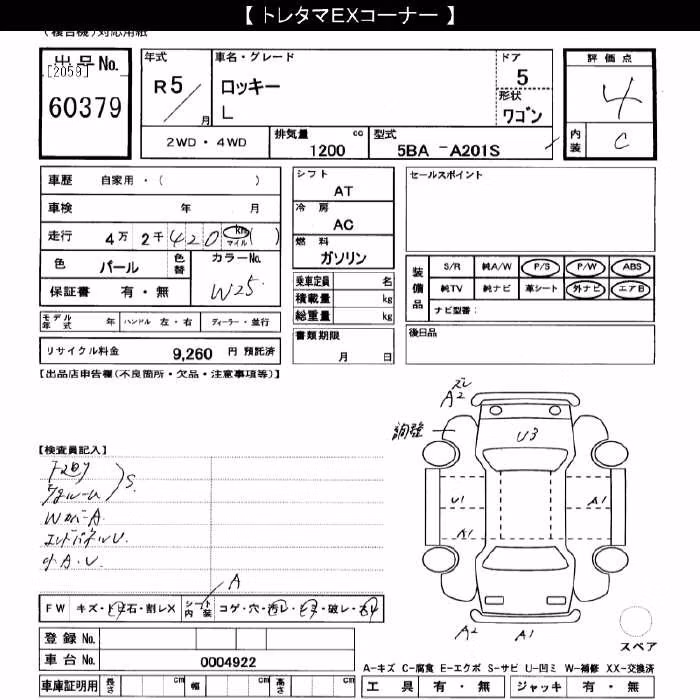 【 トレタマEXコーナー 】
(複合機)対応用紙
出品No.
[2059]
60379
年式
R5/月
車名・グレード
ロッキー
L
ドア
5
形状
ワゴン
評価点
4
内装
C
2WD・4WD
排気量 cc
1200
型式
5BA -A201S
車歴 自家用・( )
車検 年 月
走行 4万 2千 420 km マイル ( )
色 パール 色替 カラーNo. W25
保証書 有・無
モデル年式 年 ハンドル 左・右 ディーラー・並行
リサイクル料金 9,260 円 預託済
シフト
AT
冷房
AC
燃料
ガソリン
乗車定員 名
積載量 kg
総重量 kg
書類期限
月 日
セールスポイント
装備品
S/R 純A/W P/S P/W ABS
純TV 純ナビ 革シート 外ナビ エアB
ナビ型番:
後日品
【出品店申告欄(不良箇所・欠品・注意事項等)】
【検査員記入】
S.
Wカバ-A.
エンドパネルU.
小A.U.
A
FW キズ・トビ石・割レX シート内装 コゲ・穴・汚レ・シミ・破レ・スレ
登録No.
車台No. 0004922
車庫証明用 長さ cm 幅 cm 高さ cm
ズレ
A2
U3
U1
A1
A1
A2
A1
スペア
A-キズ C-腐食 E-エクボ S-サビ U-凹ミ W-補修 XX-交換済
工具 有・無 ジャッキ 有・無